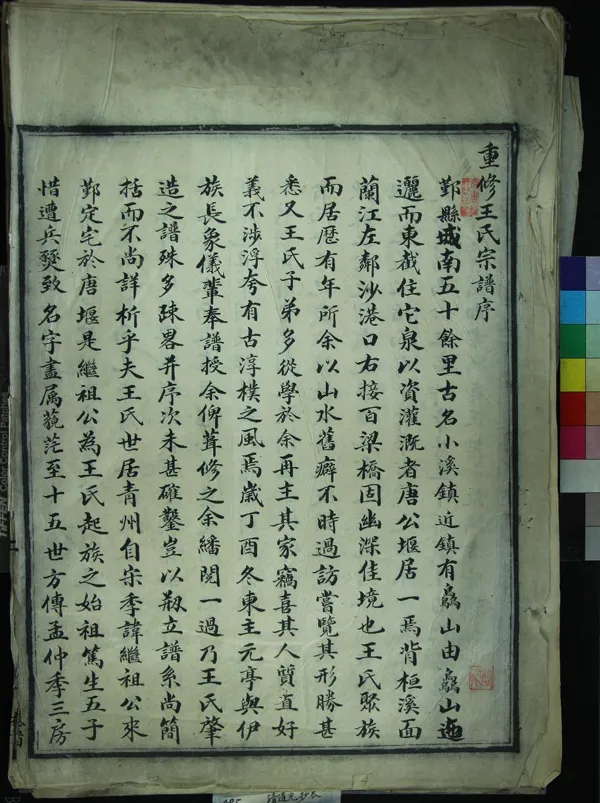 重修王氏宗譜序
鄞縣城南五十餘里古名小溪鎮近鎮有驫山由驫山迤
邐而東截住它泉以資灌溉者唐公堰居一焉背桓溪面
蘭江左鄰沙港口右接百梁橋固幽深佳境也王氏聚族
而居歷有年所余以山水舊癖不時過訪嘗覽其形勝甚
悉又王氏子弟多從學於余再主其家竊喜其人質直好
義不涉浮夸有古淳樸之風焉歲丁酉冬東主元亭與伊
族長象儀輩奉譜授余俾葺修之余繙閱一過乃王氏肇
造之譜殊多疎畧并序次未甚確鑿豈以剏立譜系尚簡
括而不尚詳析乎夫王氏世居青州自宋季諱繼祖公來
鄞定宅於唐堰是繼祖公為王氏起族之始祖篤生五子
惜遭兵燹致名字盡属藐茫至十五世方傳孟仲季三房
卷首